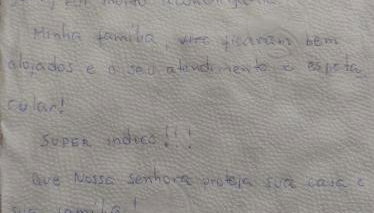 Minha família, ficaram bem
alojados e o seu atendimento é espeta
cular!
SUPER indico!!!
Que Nossa Senhora proteja sua casa e
sua família!